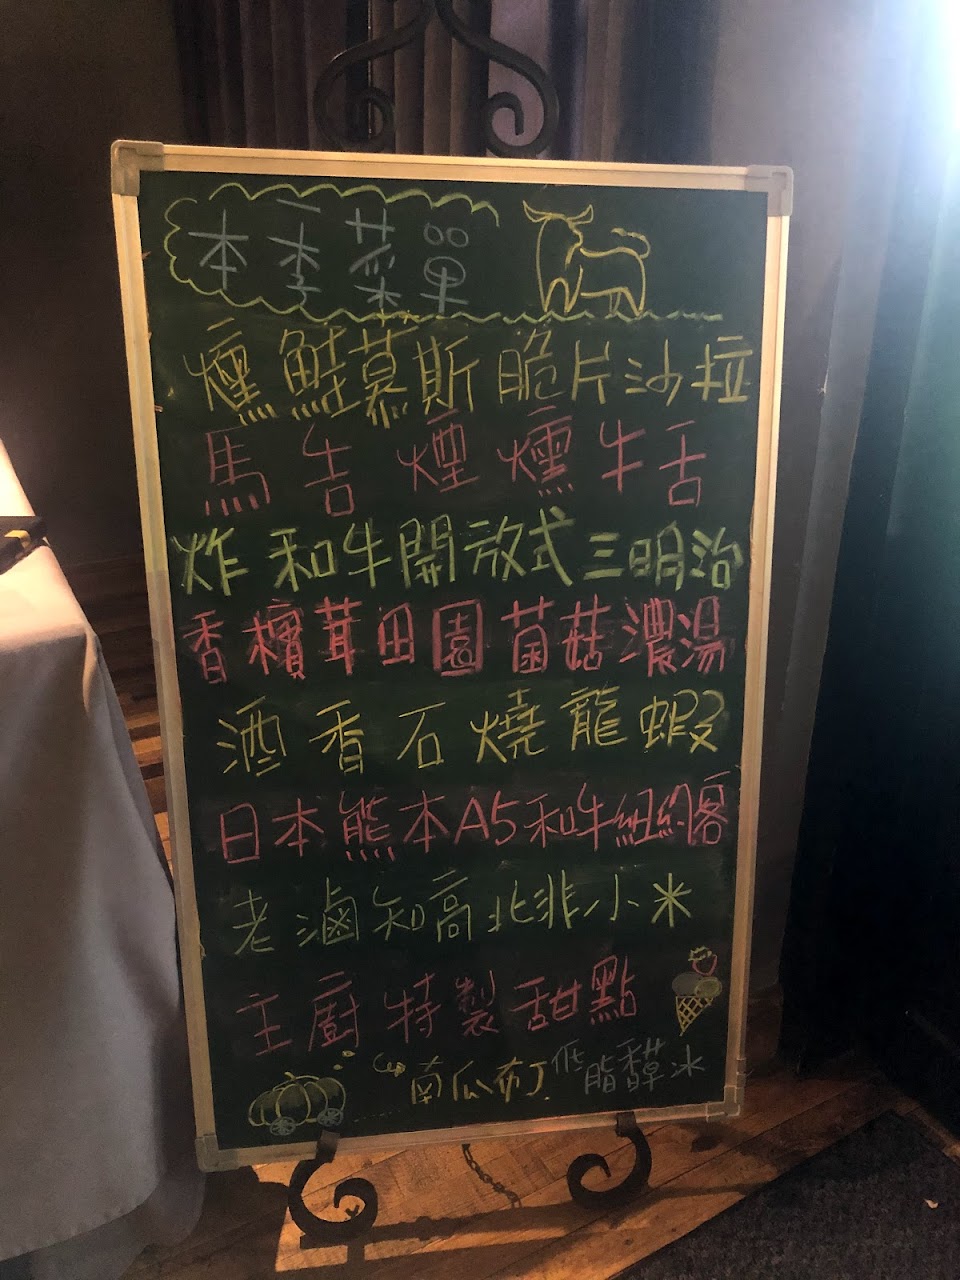 本季菜單
燻鮭慕斯脆片沙拉
馬告煙燻牛舌
炸和牛開放式三明治
香檳茸田園菌菇濃湯
酒香石燒龍蝦
日本熊本A5和牛紐約客
老滷知高北非小米
主廚特製甜點
南瓜布丁 低脂香草冰